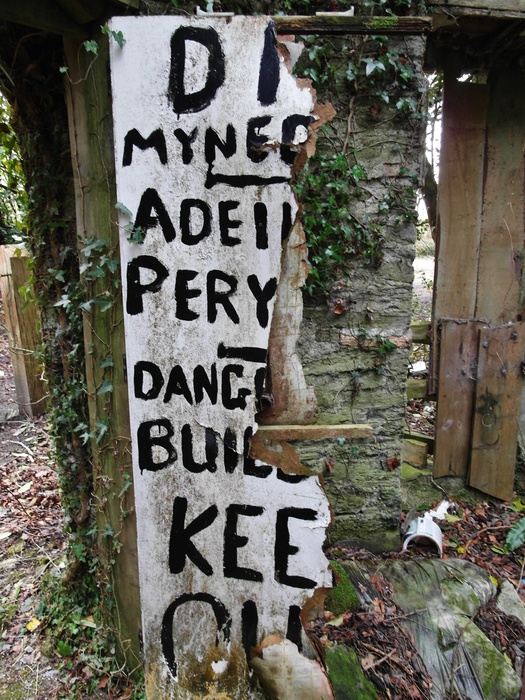 DI
MYNED
ADEIL
PERY
DANGE
BUIL
KEE
OU